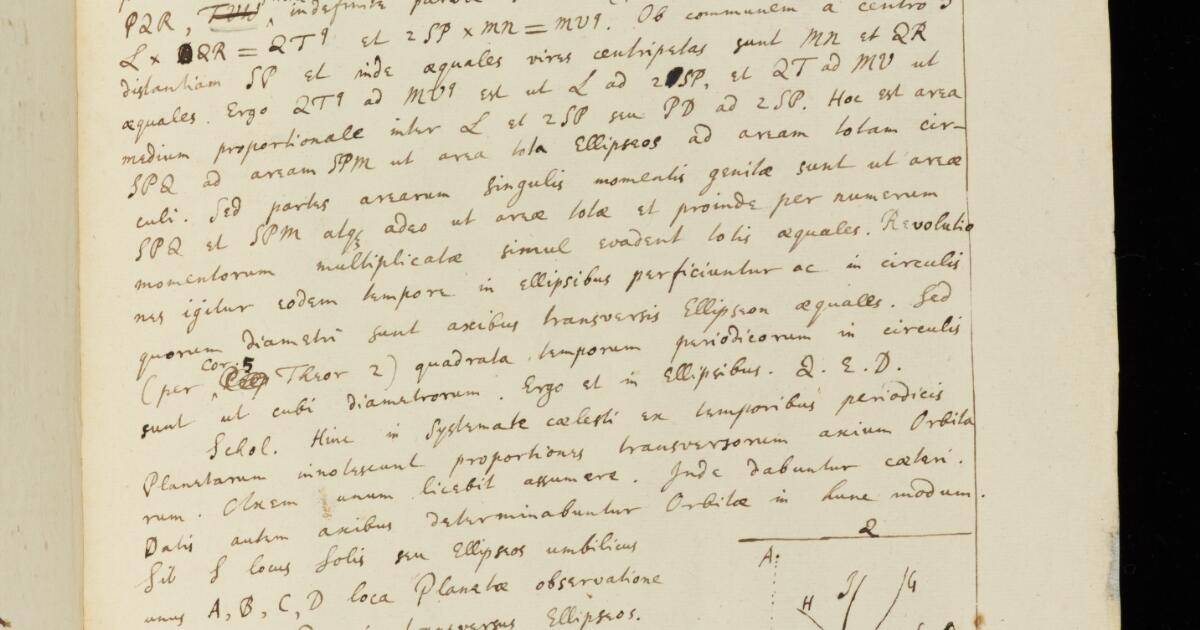 PQR, indefinite
L × QR = QT^q et 2SP × MN = MV^q. Ob communem a centro S
distantiam SP et inde æquales vires centripetas sunt MN et QR
æquales. Ergo QT^q ad MV^q est ut L ad 2SP, et QT ad MV ut
medium proportionale inter L et 2SP seu PD ad 2SP. Hoc est area
SPQ ad aream SPM ut area tota Ellipseos ad aream totam cir-
culi. Sed partes arearum singulis momentis genitæ sunt ut areæ
SPQ et SPM atq; adeo ut areæ totæ et proinde per numerum
momentorum multiplicatæ simul evadent totis æquales. Revolutio
nes igitur eodem tempore in ellipsibus perficiuntur ac in circulis
quorum diametri sunt axibus transversis Ellipseon æquales. Sed
(per cor. 5 Theor 2) quadrata temporum periodicorum in circulis
sunt ut cubi diametrorum. Ergo et in Ellipsibus. Q. E. D.
Schol. Hinc in Systemate cælesti ex temporibus periodicis
Planetarum innotescunt proportiones transversorum axium Orbita
rum. Axem unum licebit assumere. Inde dabuntur cæteri.
Datis autem axibus determinabuntur Orbitæ in hunc modum.
Sit S locus Solis seu Ellipseos umbilicus
unus A, B, C, D loca Planetæ observatione
Ellipseos.
Q
A
H
G